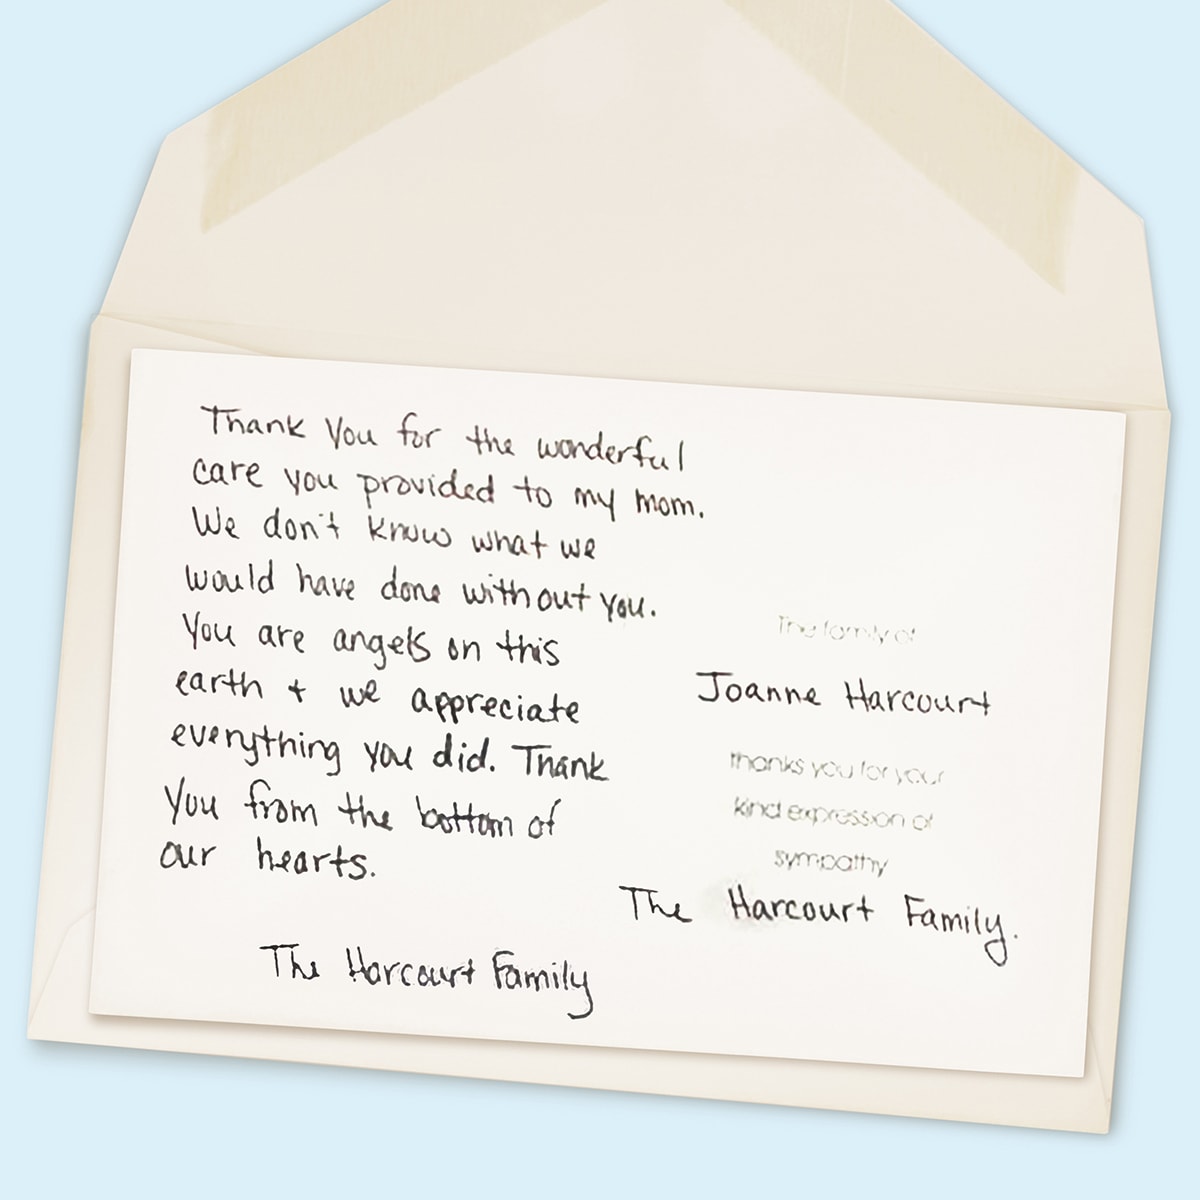 Thank You for the wonderful
care you provided to my mom.
We don't know what we
would have done without you.
You are angels on this
earth + we appreciate
everything you did. Thank
You from the bottom of
our hearts.
The Harcourt Family
The family of
Joanne Harcourt
thanks you for your
kind expression of
sympathy
The Harcourt Family.